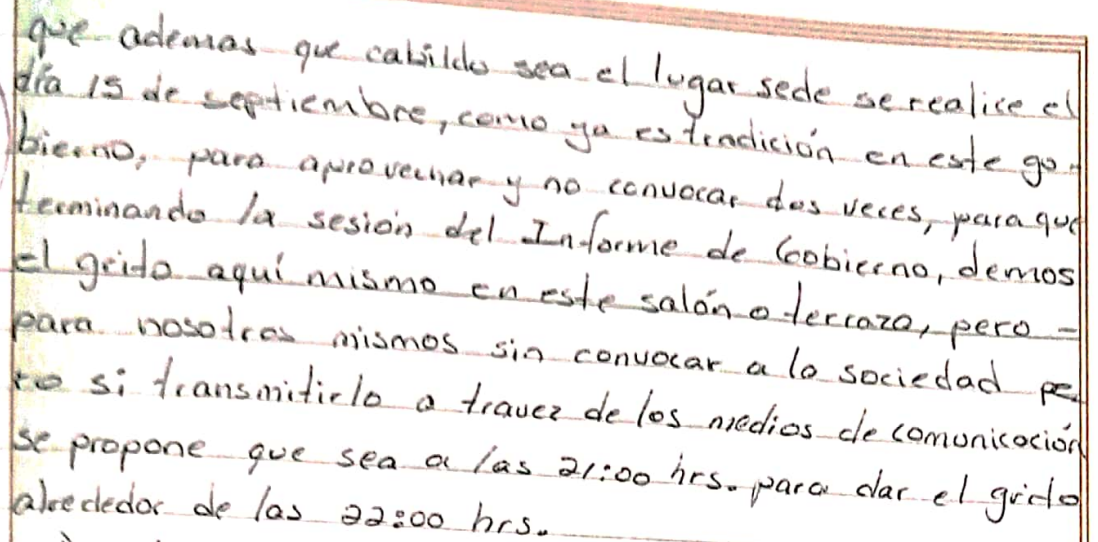 que ademas que cabildo sea el lugar sede se realice el
día 15 de septiembre, como ya es tradición en este go-
bierno, para aprovechar y no convocar dos veces, para que
terminando la sesión del Informe de Gobierno, demos
el grito aquí mismo en este salón o terraza, pero -
para nosotros mismos sin convocar a la sociedad pe
ro si transmitirlo a travez de los medios de comunicación
se propone que sea a las 21:00 hrs. para dar el grito
alrededor de las 22:00 hrs.